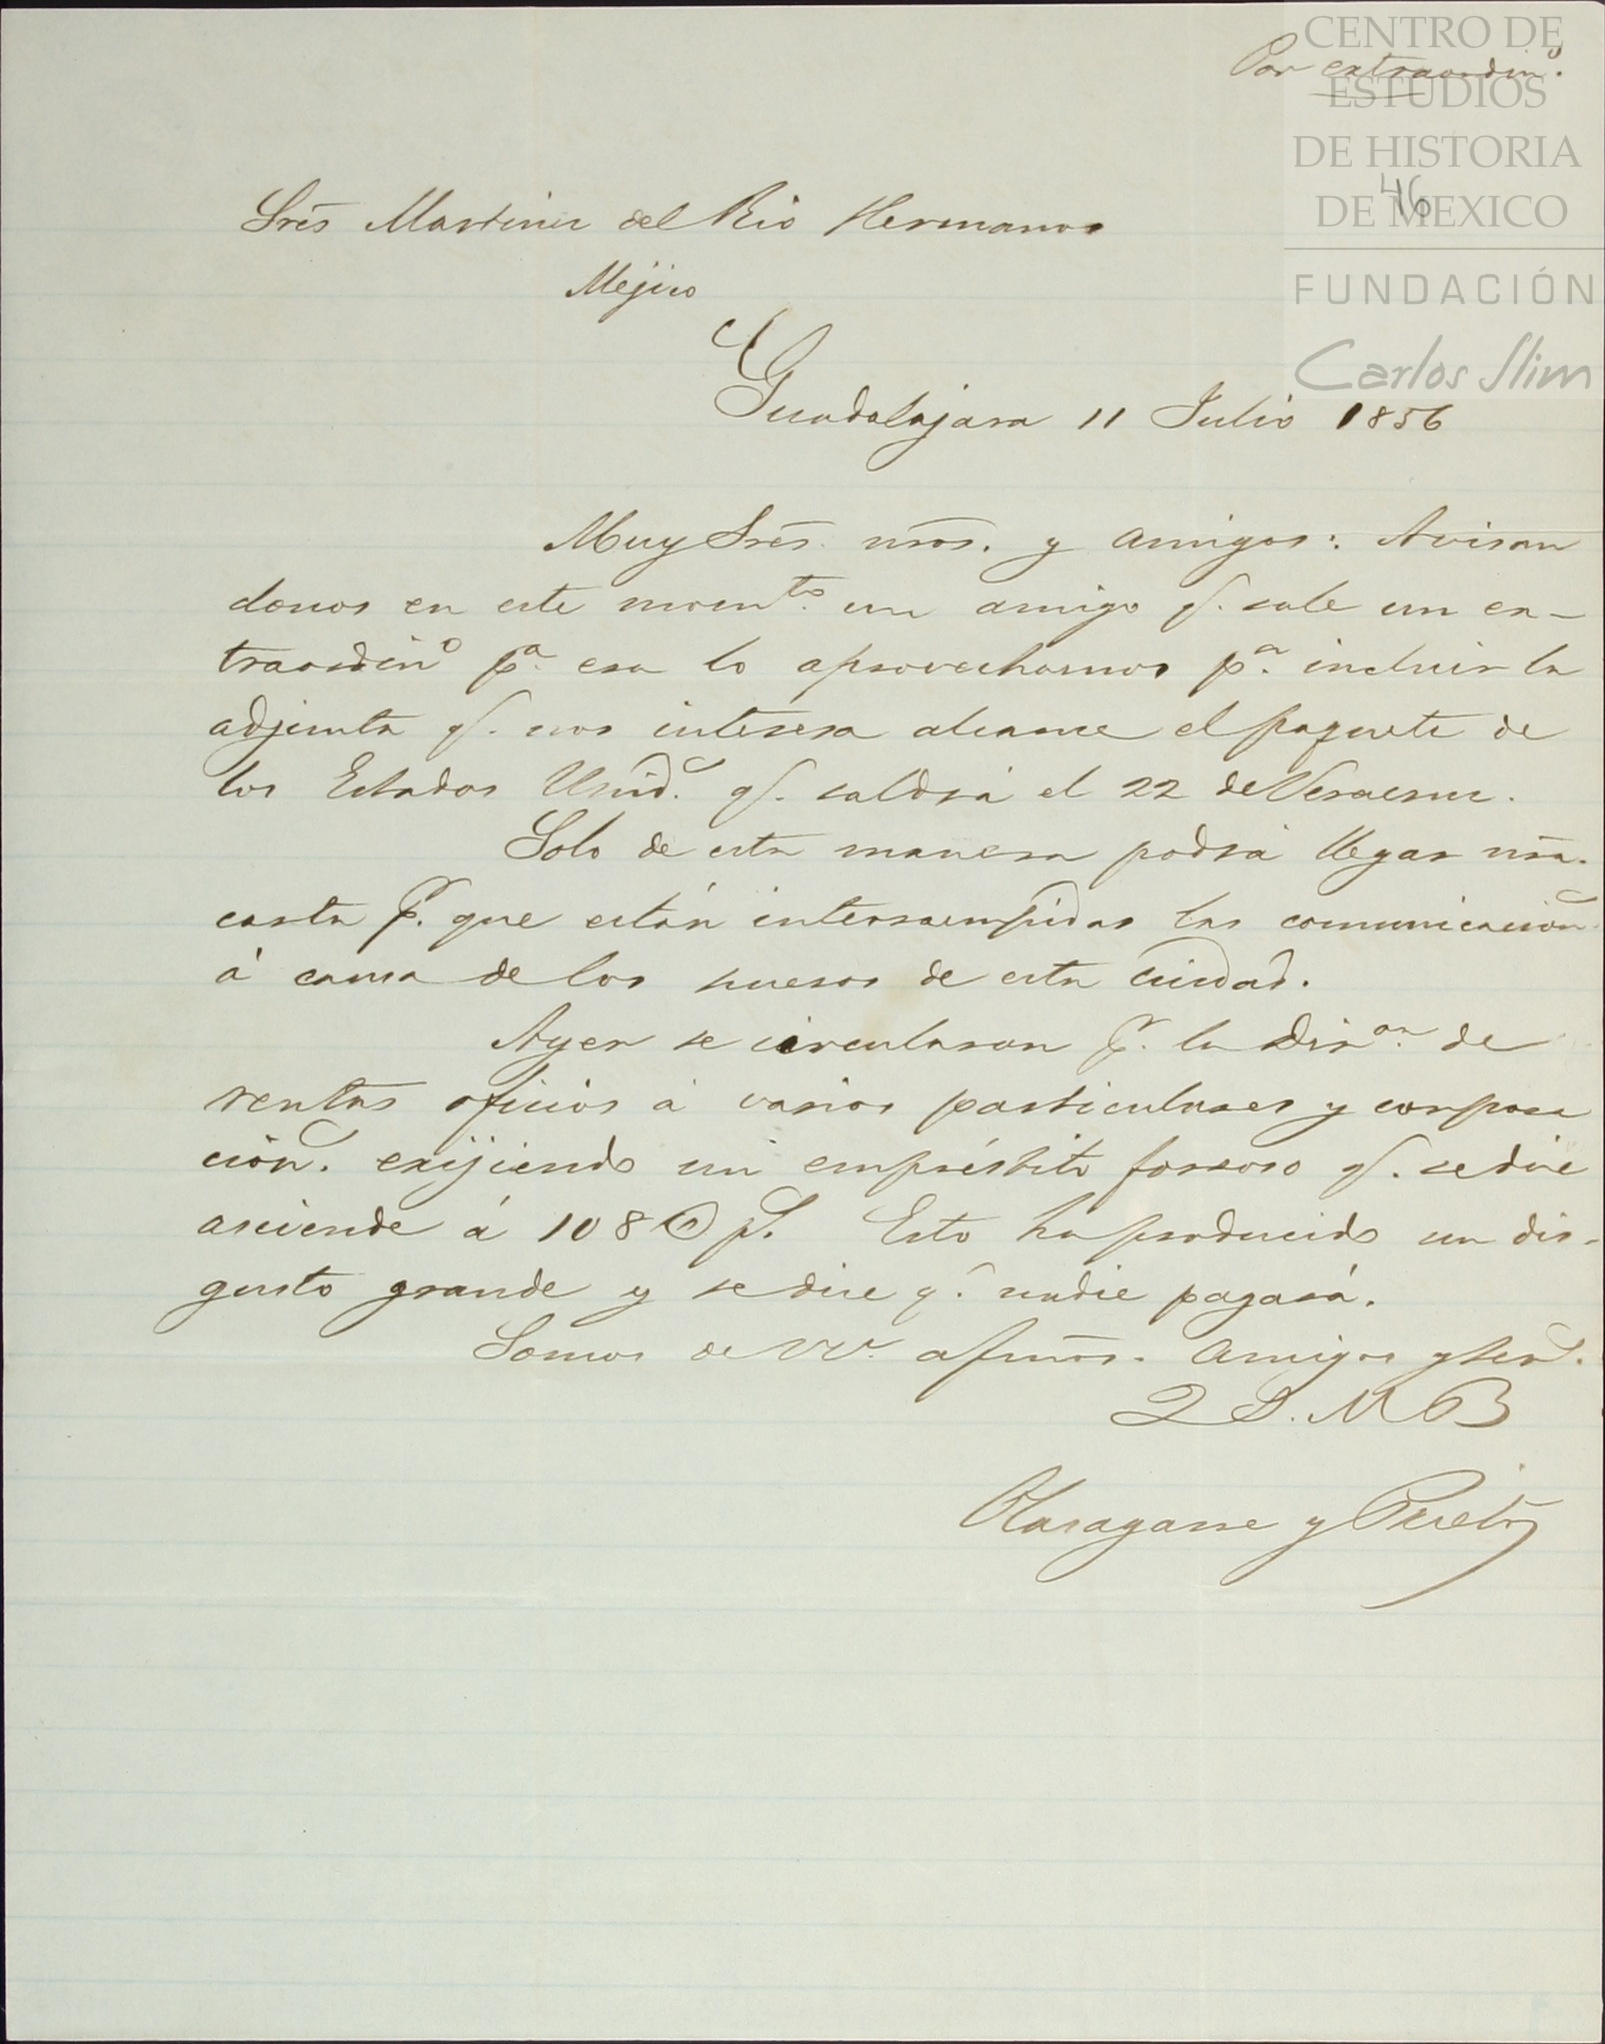 CENTRO DE
Por extraordin.º
ESTUDIOS
DE HISTORIA
46
DE MEXICO
Sres Martinez del Rio Hermanos
Mejico
FUNDACIÓN
Carlos Slim
Guadalajara 11 Julio 1856
Muy Sres nros. y amigos: Avisan
donos en este momto. un amigo q. sale un ex-
traordinº pª esa lo aprovechamos pª incluir la
adjunta q. nos interesa alcance el paquete de
los Estados Unid.s q. saldrá el 22 de Veracruz.
Solo de esta manera podrá llegar nra.
carta pr. que están interrumpidas las comunicacion.s
á causa de los sucesos de esta ciudad.
Ayer se circularon pr. la Dir.on de
rentas oficios á varios particulares y corpora
cion.s exijiendo un empréstito forzoso q. se dice
asciende á 108 @ p.s Esto ha producido un dis-
gusto grande y se dice q. nadie pagará.
Somos de VV. afmos. amigos y ser.s
Q S. M B
Olasagarre y Prieto